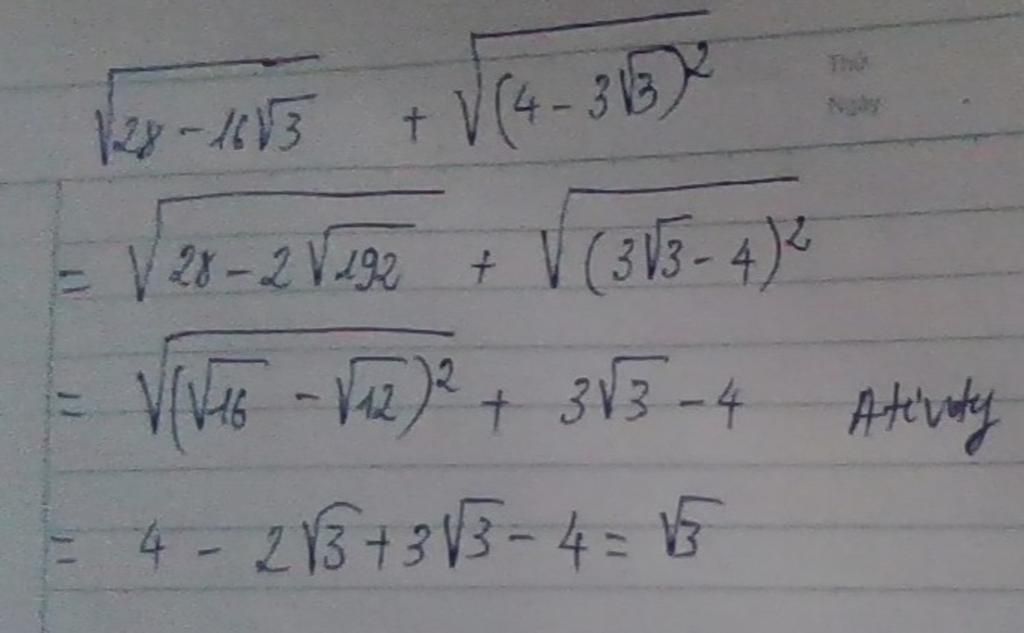 √(28 - 16√3) + √((4 - 3√3)²)
Thứ
Ngày
= √(28 - 2√192) + √((3√3 - 4)²)
= √((√16 - √12)²) + 3√3 - 4
= 4 - 2√3 + 3√3 - 4 = √3